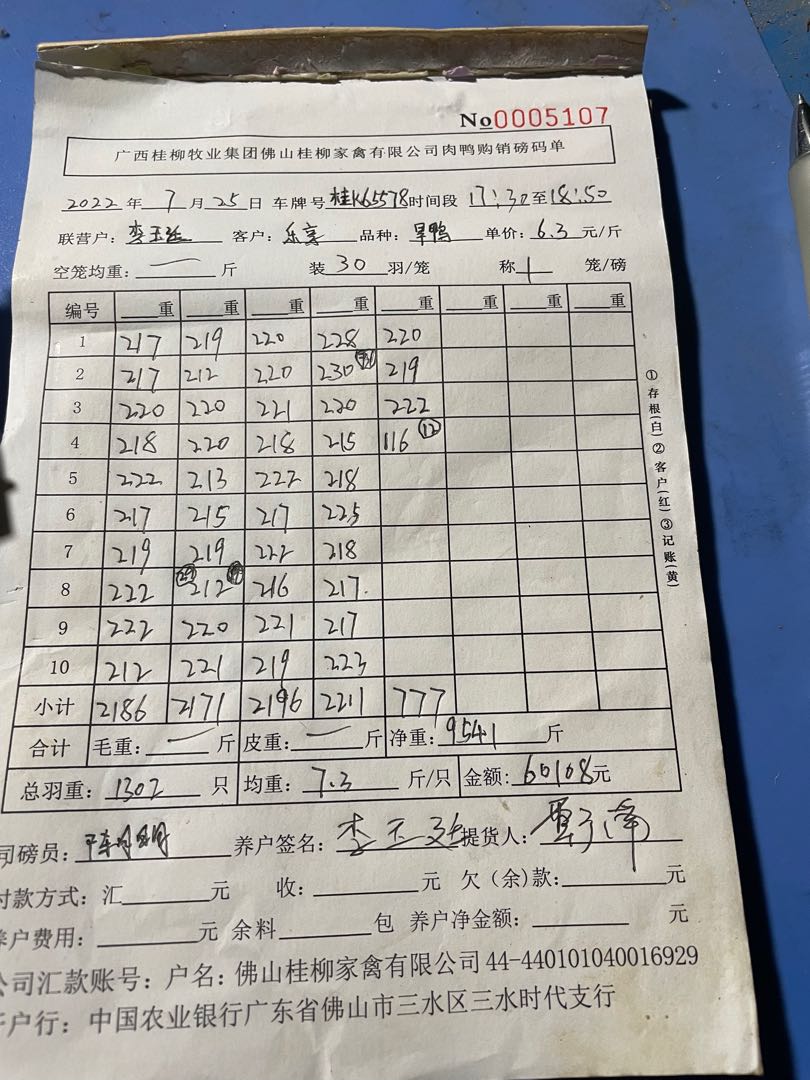 No 0005107
广西桂柳牧业集团佛山桂柳家禽有限公司肉鸭购销磅码单
2022 年 7 月 25 日 车牌号 桂K65578 时间段 17:30 至 18:50
联营户: 李玉 客户: 乐享 品种: 旱鸭 单价: 6.3 元/斤
空笼均重: 一 斤 装 30 羽/笼 称 1 笼/磅
编号 重 重 重 重 重 重 重 重
1 217 219 220 228 220
2 217 212 220 230 219
3 220 220 221 220 222
4 218 220 218 215 116 (12)
5 222 213 222 218
6 217 215 217 225
7 219 219 222 218
8 222 (29) 212 216 217.
9 222 220 221 217
10 212 221 219 223
小计 2186 2171 2196 2211 777
合计 毛重: 一 斤 皮重: 一 斤 净重: 9541 斤
总羽重: 1302 只 均重: 7.3 斤/只 金额: 60108元
司磅员: 养户签名: 李玉 提货人:
付款方式: 汇 元 收: 元 欠(余)款: 元
养户费用: 元 余料 包 养户净金额: 元
公司汇款账号: 户名: 佛山桂柳家禽有限公司 44-440101040016929
开户行: 中国农业银行广东省佛山市三水区三水时代支行
①存根(白)②客户(红)③记账(黄)